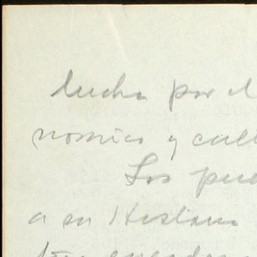 lucha por el
nomico y cul
Los pue
a su Historia